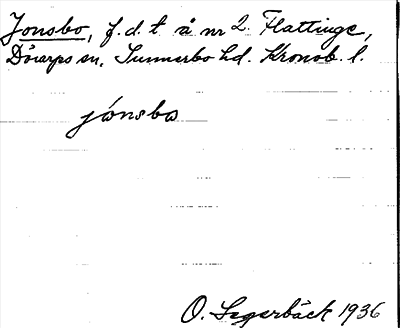 Jonsbo, f.d. t å nr 2 Flattinge,
Dörarps sn. Sunnerbo hd. Kronob. l.
jónsbo
O. Segerbäck 1936